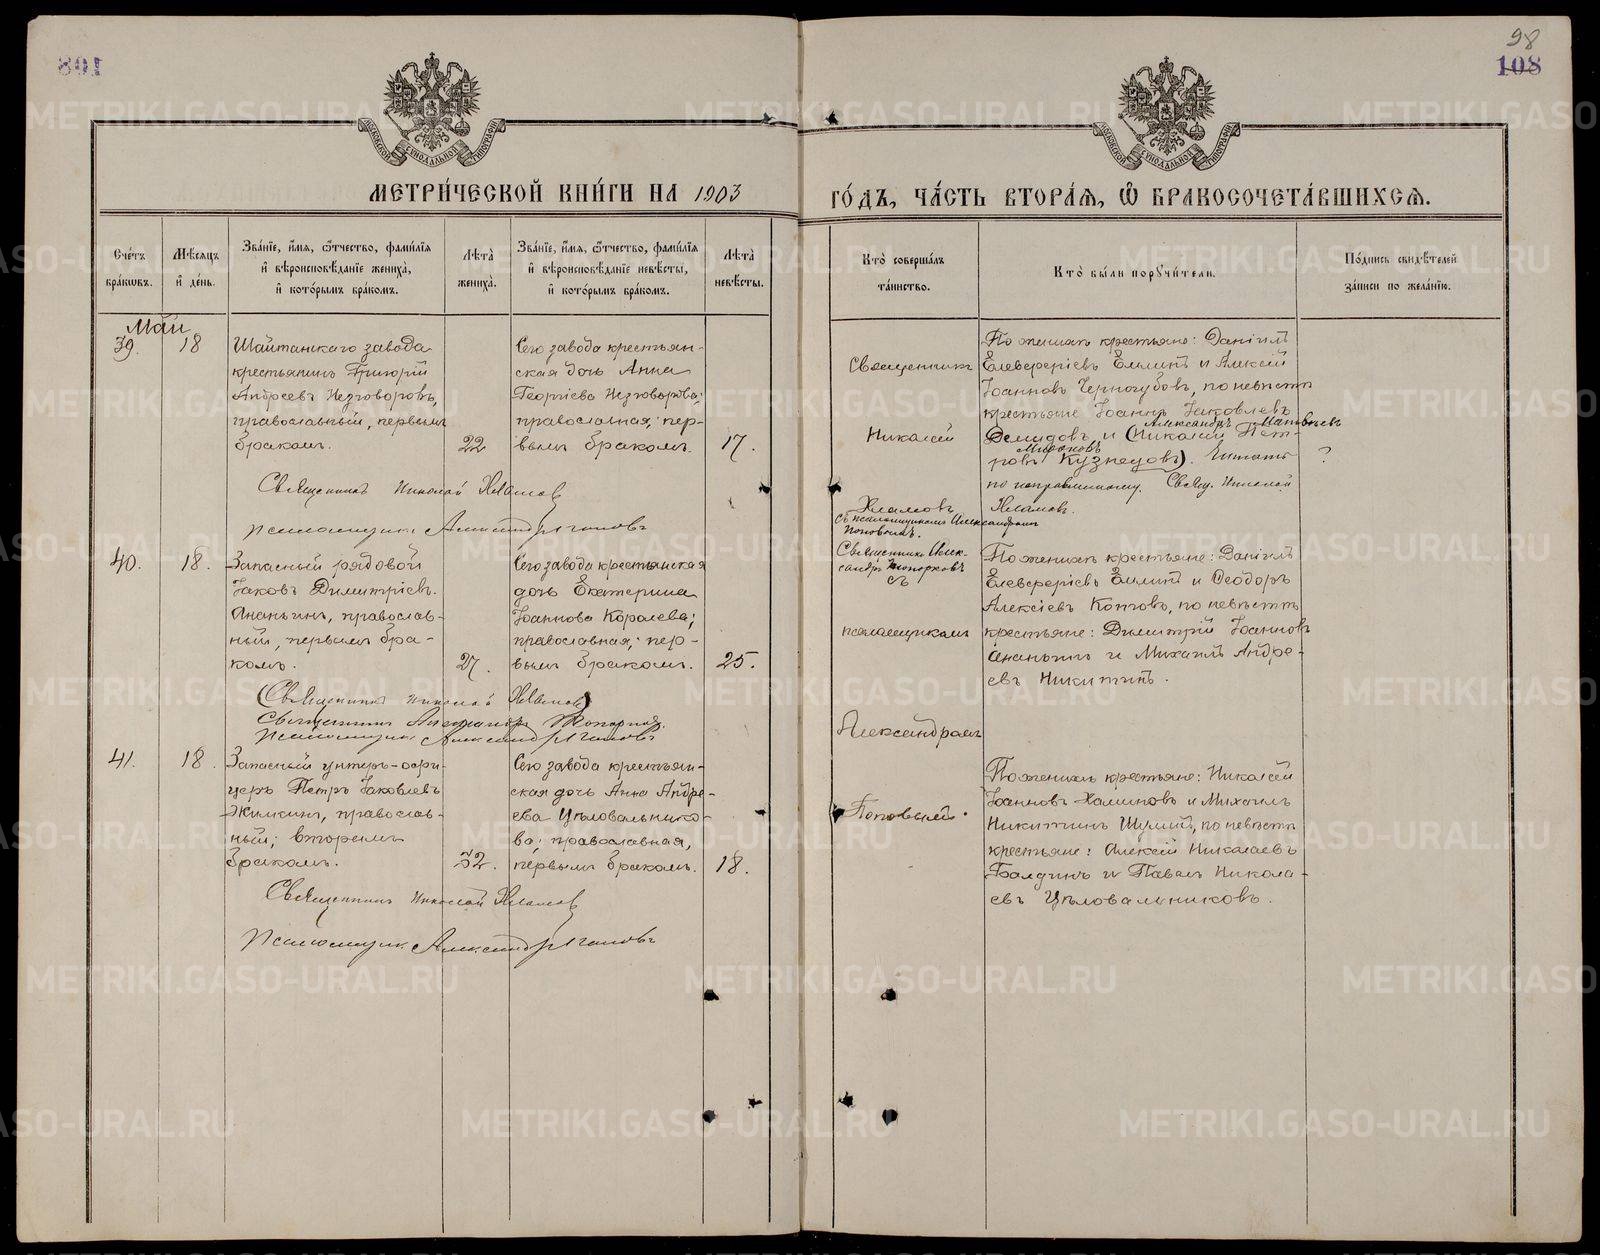 98
108
МОСКОВСКОЙ СѴНОДАЛЬНОЙ ТИПОГРАФІИ
МОСКОВСКОЙ СѴНОДАЛЬНОЙ ТИПОГРАФІИ
МЕТРИ́ЧЕСКОЙ КНИ́ГИ НА 1903
ГО́ДЪ, ЧА́СТЬ ВТОРА́Я, Ѿ БРАКОСОЧЕТА́ВШИХСЯ.
Сче́тъ бра́кωвъ.
Мѣ́сяцъ и҆ де́нь.
Зва́нїе, и҆́мя, ѻ҆́тчество, фами́лїя
и҆ вѣроисповѣ́данїе жениха̀,
и҆ кото́рымъ бра́комъ.
Лѣта̀ жениха̀.
Зва́нїе, и҆́мя, ѻ҆́тчество, фами́лїя
и҆ вѣроисповѣ́данїе невѣ́сты,
и҆ кото́рымъ бра́комъ.
Лѣта̀ невѣ́сты.
Кто̀ соверша́лъ
та́инство.
Кто̀ бы́ли порꙋчи́тели.
По́дпись свидѣ́телей
за́писи по жела́нїю.
Май
39.
18
Шайтанскаго завода
крестьянинъ Григорій
Андреевъ Незговоровъ,
православный, первымъ
бракомъ.
22
Сего завода крестьян-
ская дочь Анна
Георгіева Незговорова;
православная; пер-
вымъ бракомъ.
17.
Священникъ
Николай
Хламовъ
съ псаломщикомъ Александромъ
Поповымъ.
По женихѣ крестьяне: Даніилъ
Елевферіевъ Еминъ и Алексій
Іоанновъ Черногубовъ, по невѣстѣ
крестьяне Іоаннъ Іаковлевъ
Александръ Матвѣевъ
Демидовъ и (Николай Пет-
Мироновъ
ровъ Кузнецовъ). Читать
по исправленному. Свящ. Николай
Хламовъ.
?
Священникъ Николай Хламовъ
Псаломщикъ Александръ
40.
18.
Запасный рядовой
Іаковъ Димитріевъ
Ананьинъ, православ-
ный, первымъ бра-
комъ.
27.
Сего завода крестьянская
дочь Екатерина
Іоаннова Королева;
православная; пер-
вымъ бракомъ.
25.
Священникъ Алек-
сандръ Топорковъ
съ
псаломщикомъ
Александромъ
Поповымъ.
По женихѣ крестьяне: Даніилъ
Елевферіевъ Еминъ и Ѳеодоръ
Алексіевъ Коптовъ, по невѣстѣ
крестьяне: Димитрій Іоанновъ
Ананьинъ и Михаилъ Андре-
евъ Никитинъ.
(Священникъ Николай Хламовъ)
Священникъ Александръ
Псаломщикъ Александръ
41.
18.
Запасный унтеръ-офи-
церъ Петръ Іаковлевъ
Жилкинъ, православ-
ный; вторымъ
бракомъ.
32.
Сего завода крестьян-
ская дочь Анна Андре-
ева Цѣловальнико-
ва; православная,
первымъ бракомъ.
18.
По женихѣ крестьяне: Николай
Іоанновъ Халиновъ и Михаилъ
Никитинъ по невѣстѣ
крестьяне: Алексій Николаевъ
Балдинъ и Павелъ Никола-
евъ Цѣловальниковъ.
Священникъ Николай Хламовъ
Псаломщикъ Александръ
METRIKI.GASO-URAL.RU